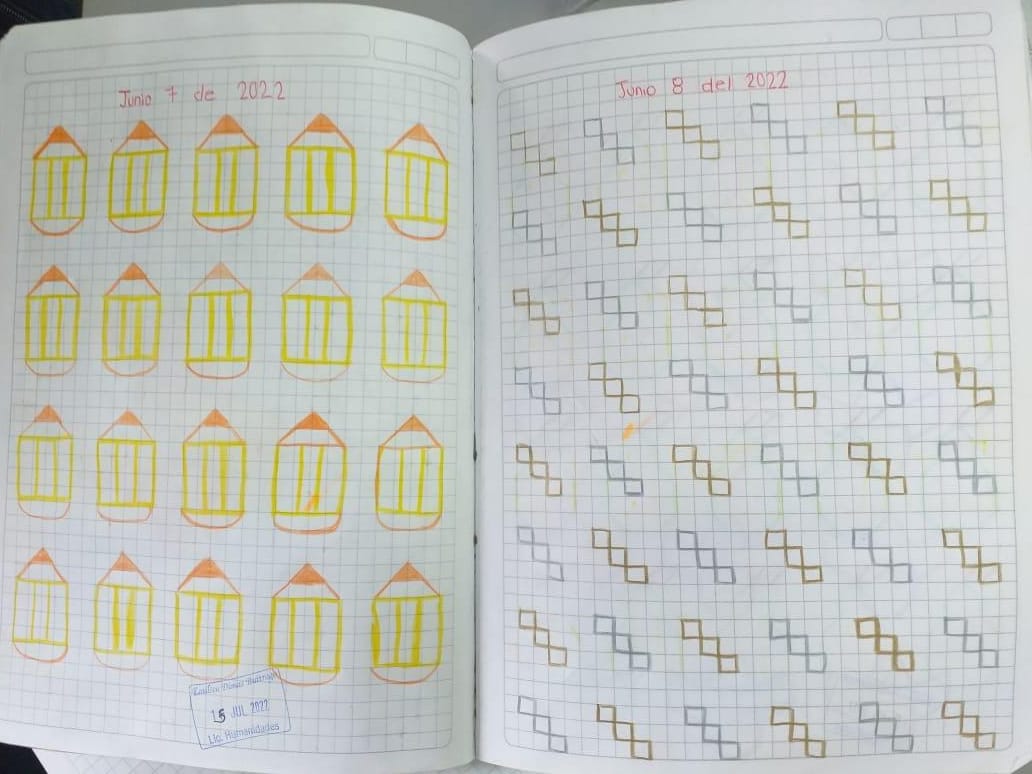 Junio 7 de 2022
15 JUL 2022
Lic. Humanidades
Junio 8 del 2022